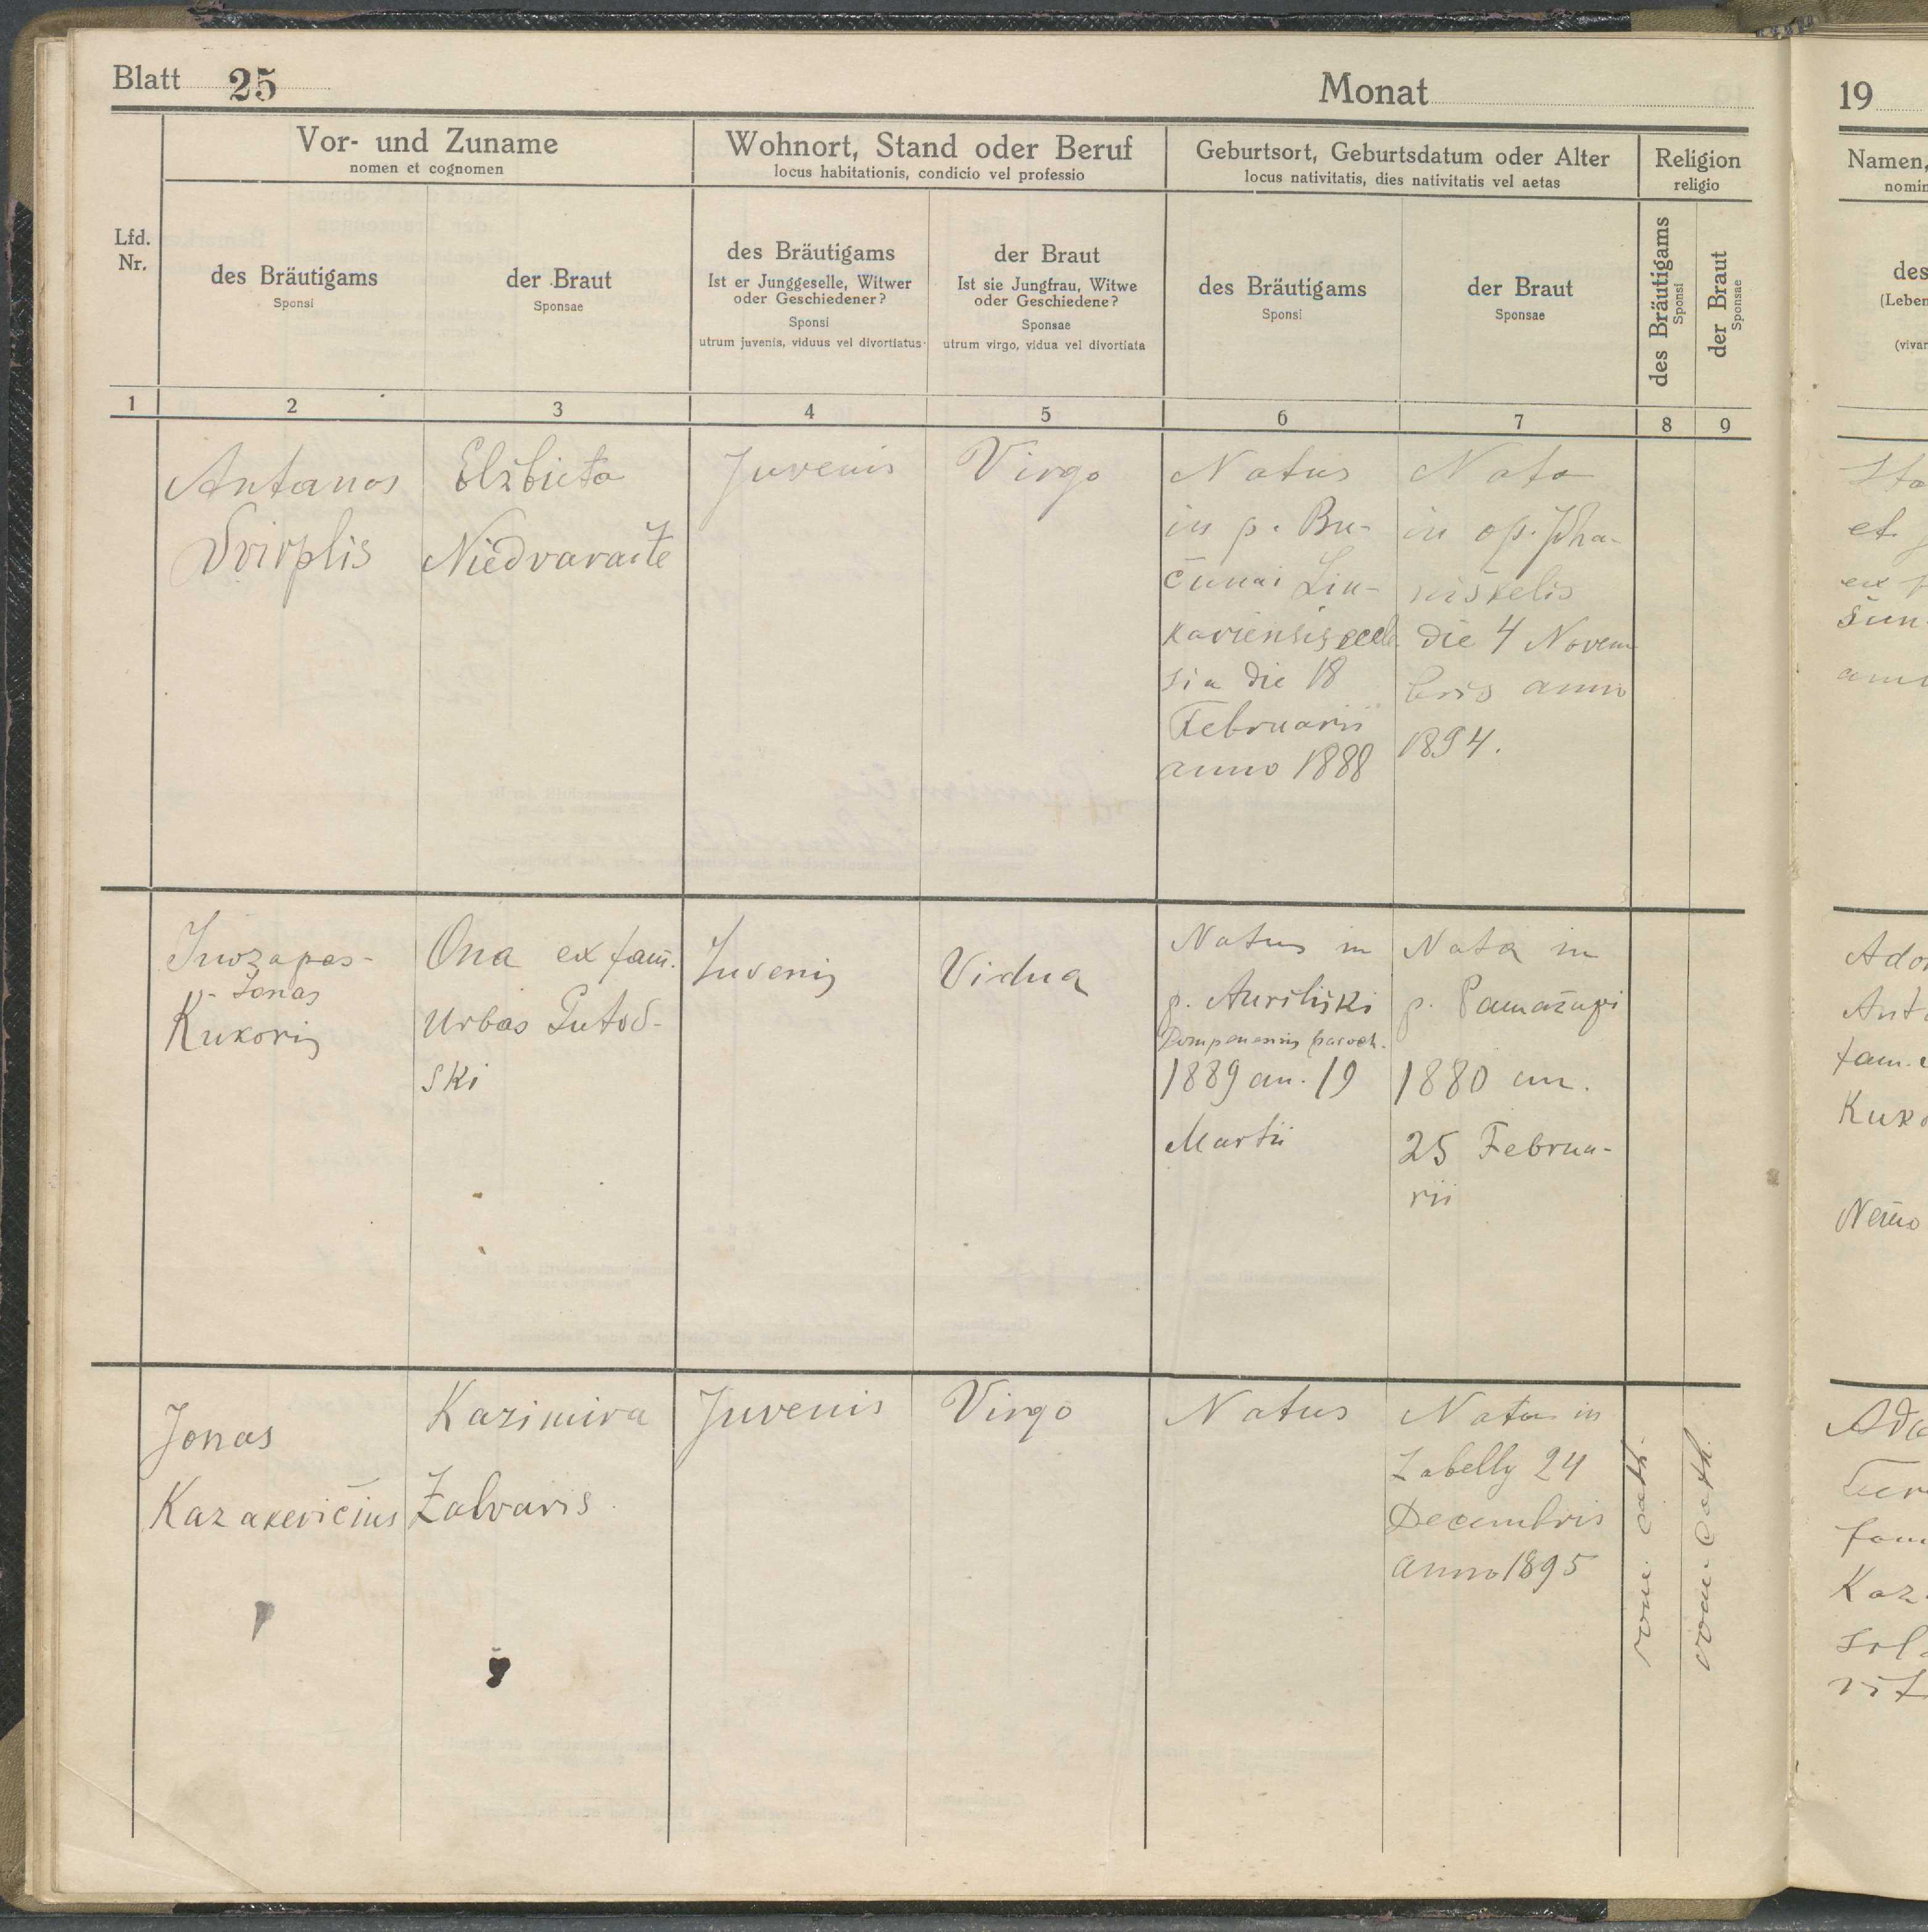 Blatt 25
Monat
Vor- und Zuname
nomen et cognomen
Wohnort, Stand oder Beruf
locus habitationis, condicio vel professio
Geburtsort, Geburtsdatum oder Alter
locus nativitatis, dies nativitatis vel aetas
Religion
religio
Lfd.
Nr.
des Bräutigams
Sponsi
der Braut
Sponsae
des Bräutigams
Ist er Junggeselle, Witwer
oder Geschiedener?
Sponsi
utrum juvenis, viduus vel divortiatus
der Braut
Ist sie Jungfrau, Witwe
oder Geschiedene?
Sponsae
utrum virgo, vidua vel divortiata
des Bräutigams
Sponsi
der Braut
Sponsae
des Bräutigams
Sponsi
der Braut
Sponsae
1 2 3 4 5 6 7 8 9
Antanas
Svirplis
Elžbieta
Niedvaraite
Juvenis
Virgo
Natus
in p. Bu-
čunai Lin-
kaviensis eccle
sia die 18
Februarii
anno 1888
Nata
in op.
niškelis
die 4 Novem
bris anno
1894.
Juozapas-
- Jonas
Kukoris
Ona ex fam.
Urbas
ski
Juvenis
Vidua
Natus in
p.
paroch.
1889 an. 19
Martii
Nata in
p.
1880 an.
25 Februa-
rii
Jonas
Kazakevičius
Kazimira
Žalvaris
Juvenis
Virgo
Natus
Nata in
Zabelly 24
Decembris
anno 1895
rom. cath.
rom. Cath.
19
Namen,
nomin
des
(Leben
(vivan
et
šun
Ado
Ant
fam.
Kuko
Ada
fam
Kaz